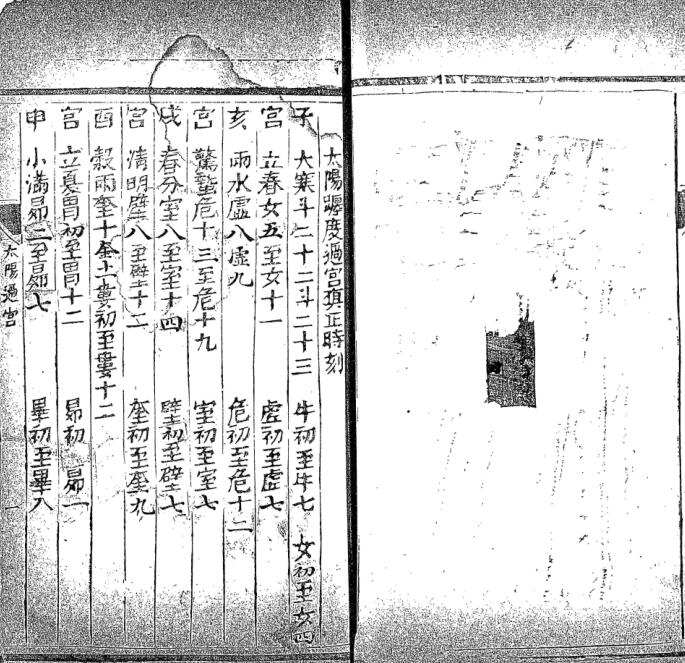 太陽躔度過宮正時刻
子 大寒斗二十二斗二十三 牛初至牛七 女初至女四
宮 立春女五至女十一 虛初至虛七
亥 雨水虛八虛九 危初至危十二
宮 驚蟄危十三至危十九 室初至室七
戌 春分室八至室十四 壁初至壁七
宮 清明壁八至壁十二 奎初至奎九
酉 穀雨奎十奎十一婁初至婁十二
宮 立夏胃初至胃十二 昴初 昴一
申 小滿昴二至昴七 畢初至畢八
太陽過宮 一